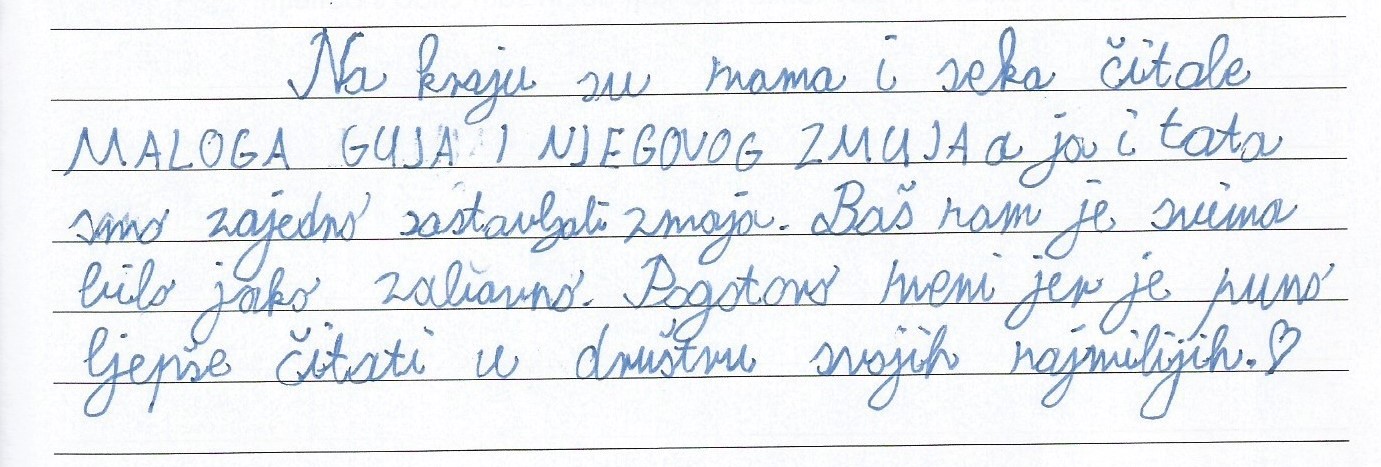 Na kraju su mama i seka čitale
MALOGA GUJA I NJEGOVOG ZMUJA a ja i tata
smo zajedno sastavljali zmaja. Baš nam je svima
bilo jako zabavno. Pogotovo meni jer je puno
ljepše čitati u društvu svojih najmilijih.♡